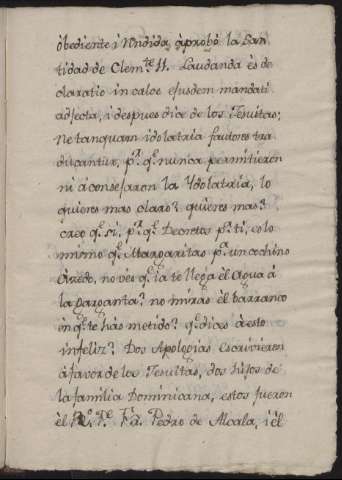 obediente i Rndida, àprobó la San
tidad de Clem.te 11. Laudanda és de
claratio in calce ejusdem mandati
adjecta, i despues dice de los Jesuitas;
Ne tanquam idolatriæ fautores tra
ducantur, p.r q.e nunca permitieron
ni áconsejaron la Ydolatria, lo
quieres mas claro? quieres mas?
creo q.e si. p.r q.e Decretos p.a ti, es lo
mismo q.e Margaritas p.a un cochino
no ves q.e ia te llega él agua á
la garganta? no miras él barranco
én q.e te hás metido? q.e dices á esto
infeliz? Dos Apologias éscrivieron
á favor de los Jesuitas, dos hijos de
la familia Dominicana, estos fueron
él Fr. Pedro de Alcala, i él